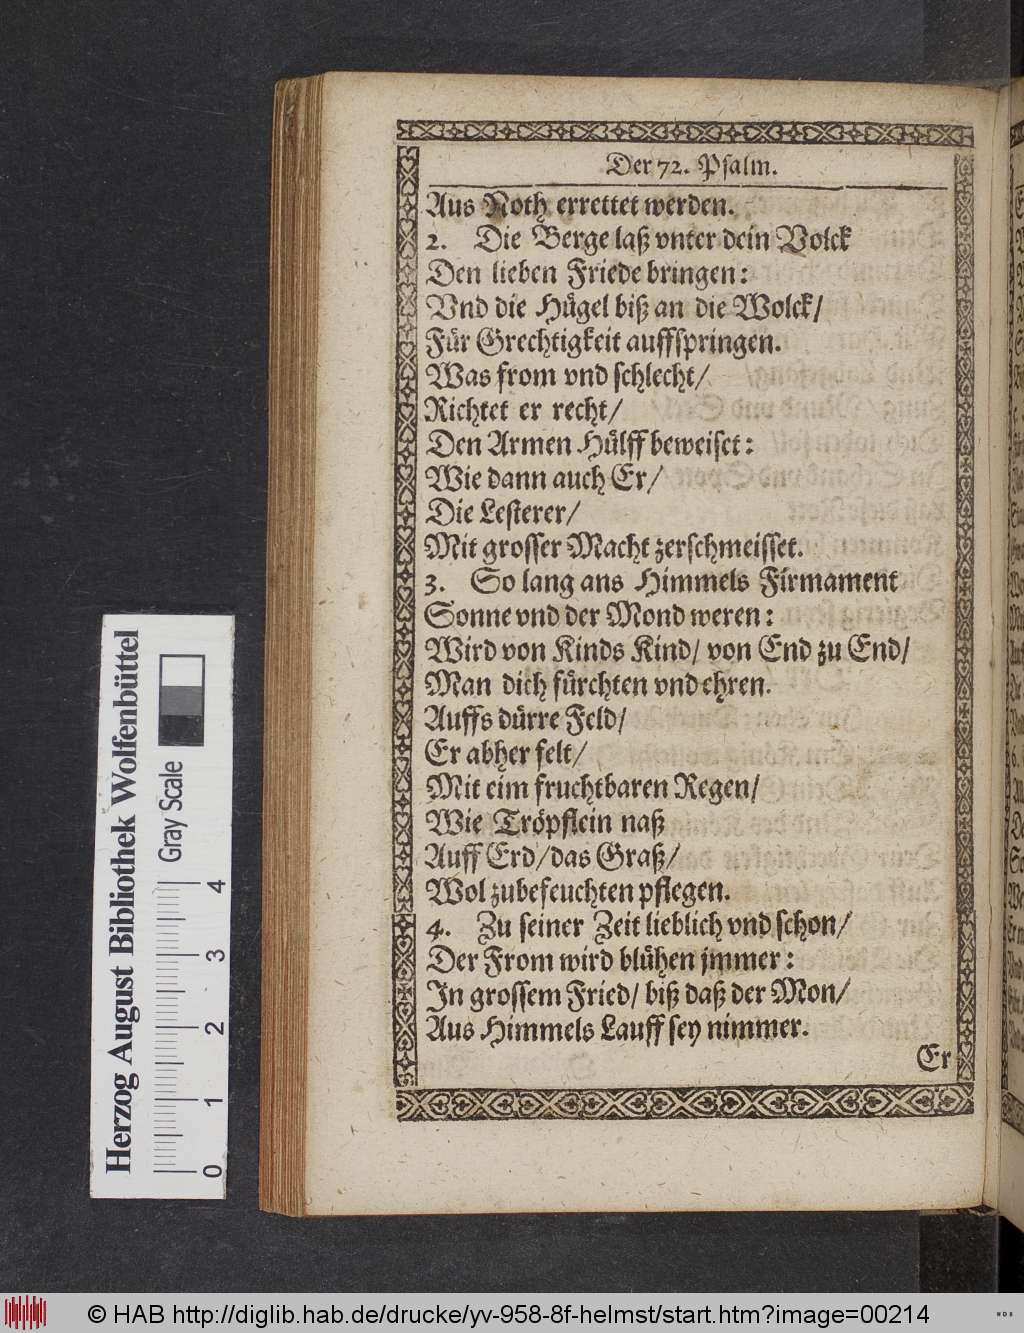 Der 72. Psalm.
Aus Noth errettet werden.
2. Die Berge laß vnter dein Volck
Den lieben Friede bringen:
Vnd die Hügel biß an die Wolck/
Für Grechtigkeit auffspringen.
Was from vnd schlecht/
Richtet er recht/
Den Armen Hülff beweiset:
Wie dann auch Er/
Die Lesterer/
Mit grosser Macht zerschmeisset.
3. So lang ans Himmels Firmament
Sonne vnd der Mond weren:
Wird von Kinds Kind/ von End zu End/
Man dich fürchten vnd ehren.
Auffs dürre Feld/
Er abher felt/
Mit eim fruchtbaren Regen/
Wie Tröpflein naß
Auff Erd/ das Graß/
Wol zubefeuchten pflegen.
4. Zu seiner Zeit lieblich vnd schon/
Der From wird blühen jmmer:
In grossem Fried/ biß daß der Mon/
Aus Himmels Lauff sey nimmer.
Er
Herzog August Bibliothek Wolfenbüttel
Gray Scale
0 1 2 3 4
© HAB http://diglib.hab.de/drucke/yv-958-8f-helmst/start.htm?image=00214